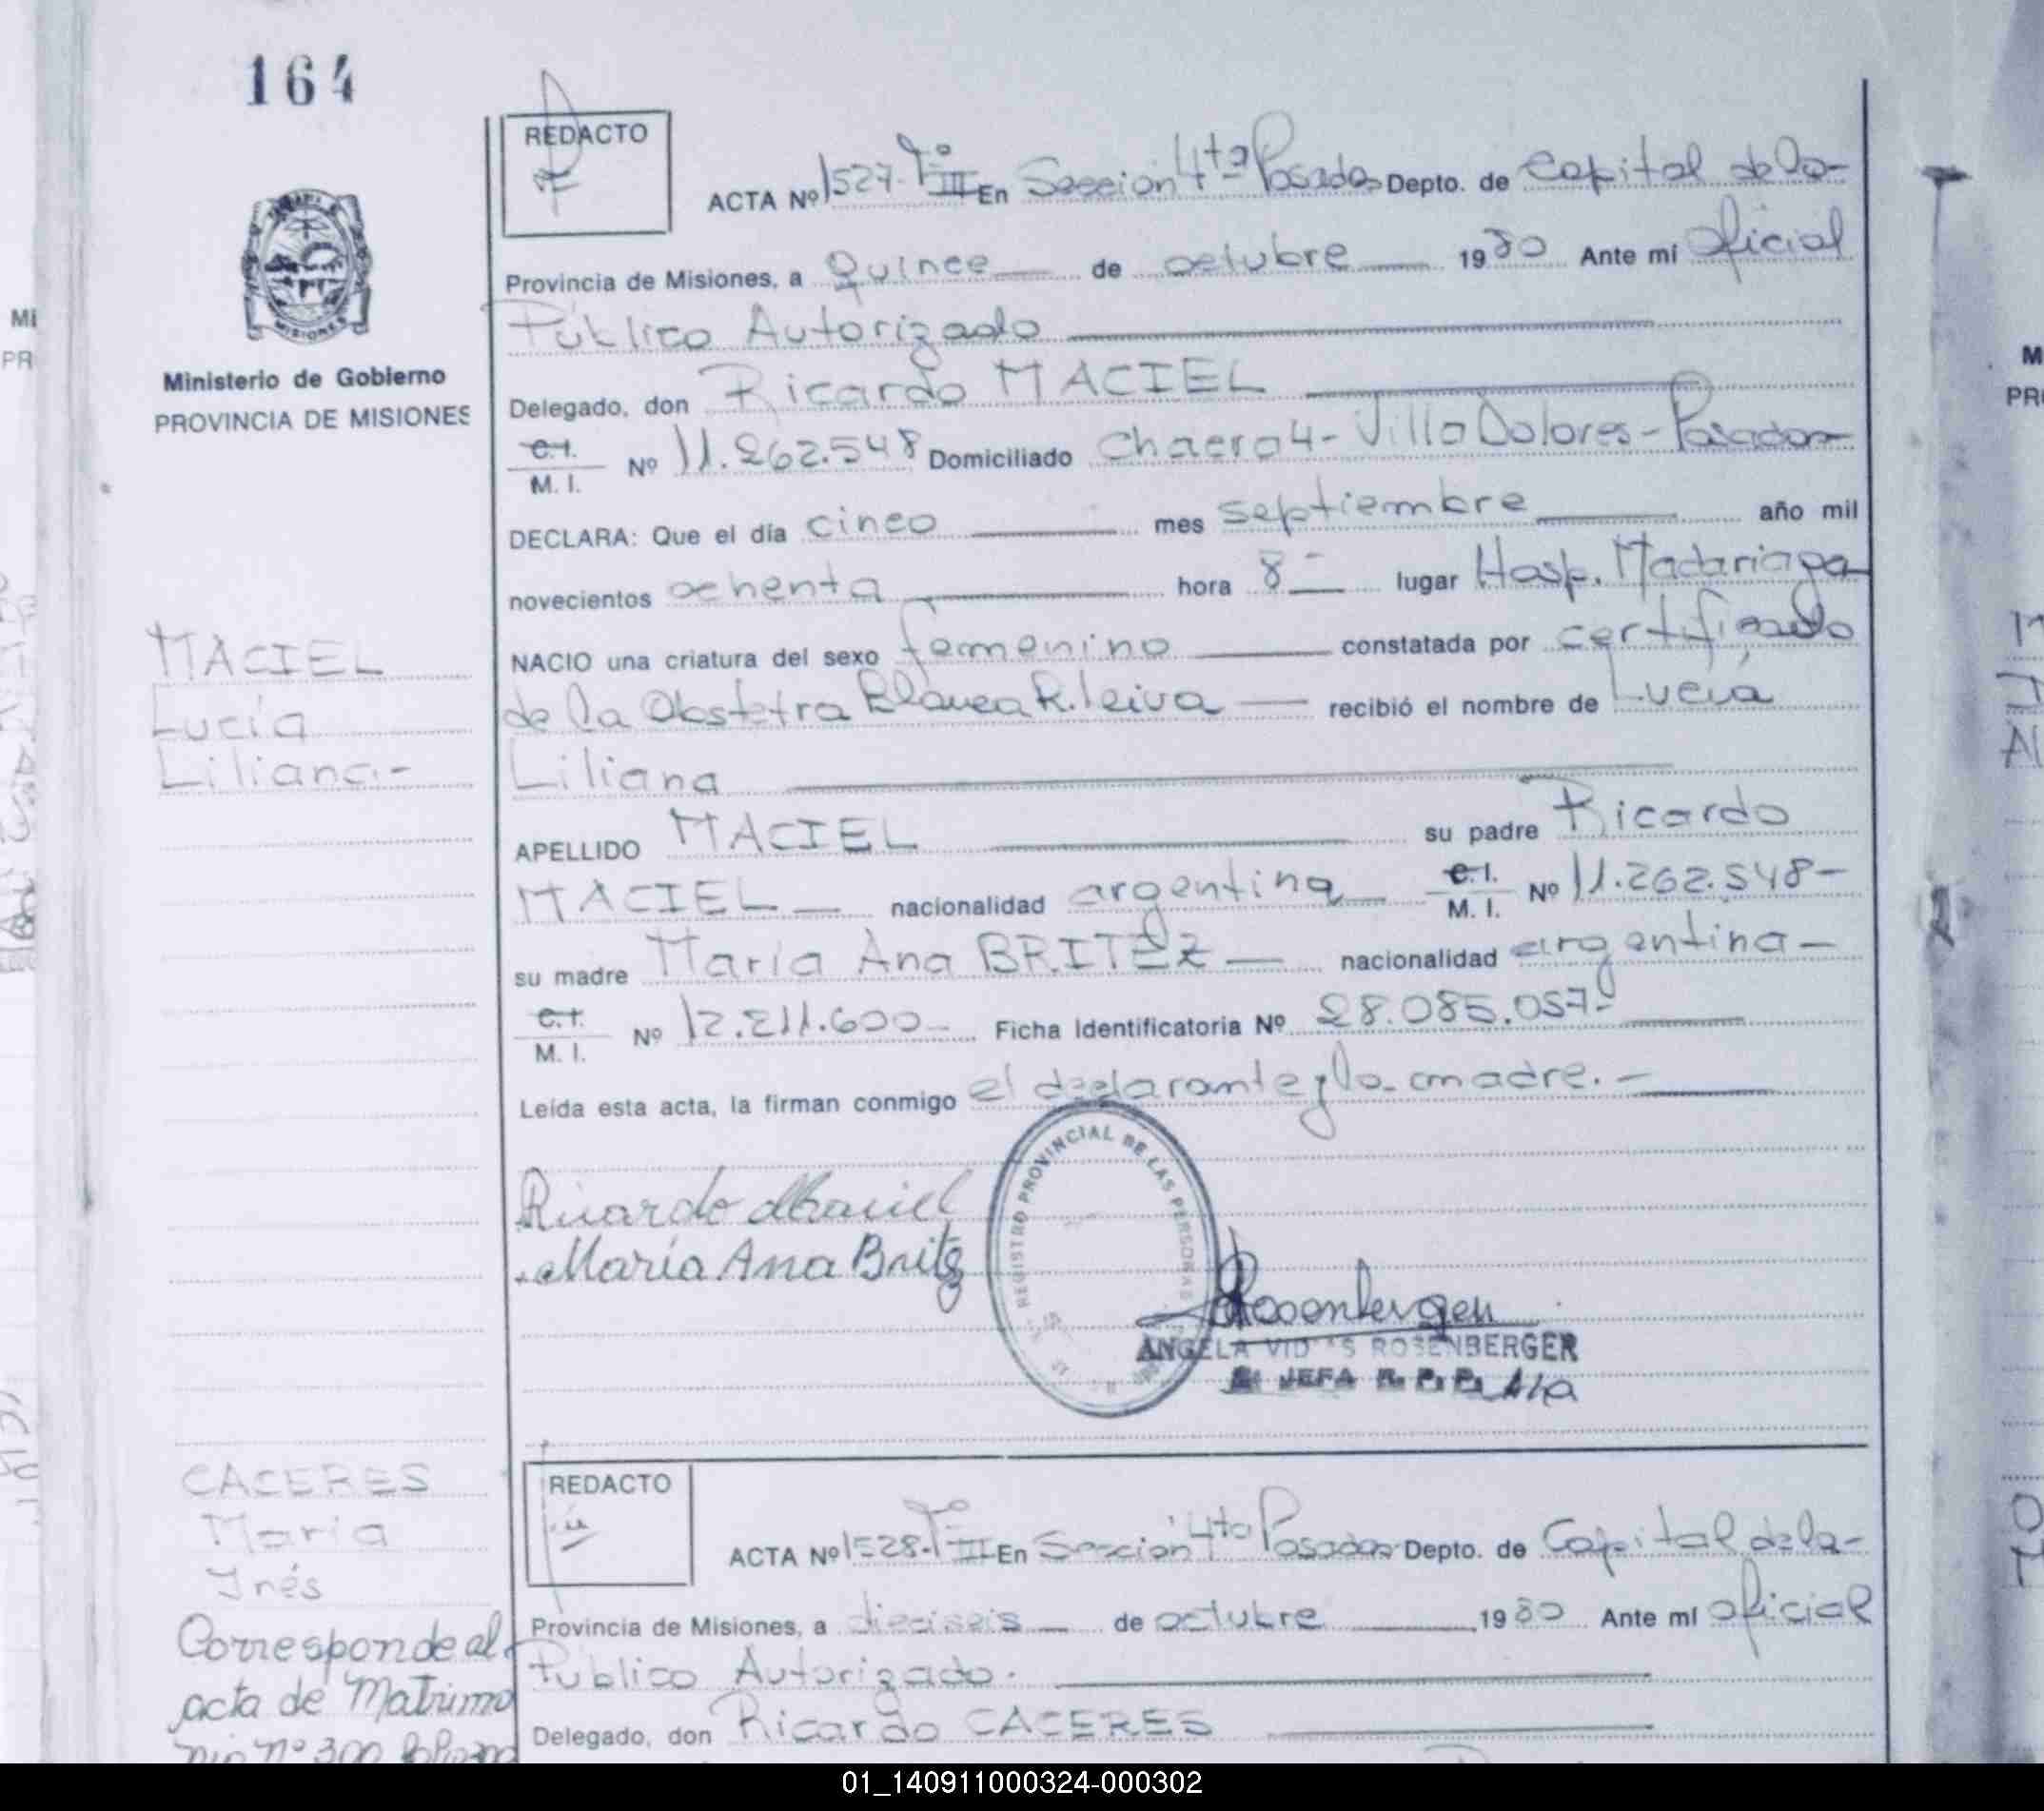 164
REDACTO
ACTA Nº 1527-Tº III En Sección 4ta Posadas Depto. de Capital de la-
Provincia de Misiones, a Quince de octubre 1980 Ante mí Oficial
Público Autorizado
Ministerio de Gobierno
PROVINCIA DE MISIONES
Delegado, don Ricardo MACIEL
C.I. M. I. Nº 11.262.548 Domiciliado Chacra 4- Villa Dolores-Posadas
DECLARA: Que el día cinco mes septiembre año mil
novecientos ochenta hora 8- lugar Hosp. Madariaga
NACIO una criatura del sexo femenino constatada por certificado
de la Obstetra Blanca R. Leiva recibió el nombre de Lucía
Liliana
MACIEL
Lucía
Liliana.-
APELLIDO MACIEL su padre Ricardo
MACIEL nacionalidad argentina C.I. M. I. Nº 11.262.548-
su madre María Ana BRITEZ nacionalidad argentina-
C.I. M. I. Nº 12.211.600- Ficha Identificatoria Nº 28.085.057-
Leída esta acta, la firman conmigo el declarante y la madre.-
REGISTRO PROVINCIAL DE LAS PERSONAS
Ricardo Maciel
María Ana Britez
Rosenberger
ANGELA ROSENBERGER
JEFA
CACERES
María
Inés
Corresponde al
acta de Matrimo
nio nº 300
REDACTO
ACTA Nº 1528-Tº III En Sección 4ta Posadas Depto. de Capital de la-
Provincia de Misiones, a dieciseis de octubre 1980 Ante mí oficial
Publico Autorizado.
Delegado, don Ricardo CACERES
01_140911000324-000302